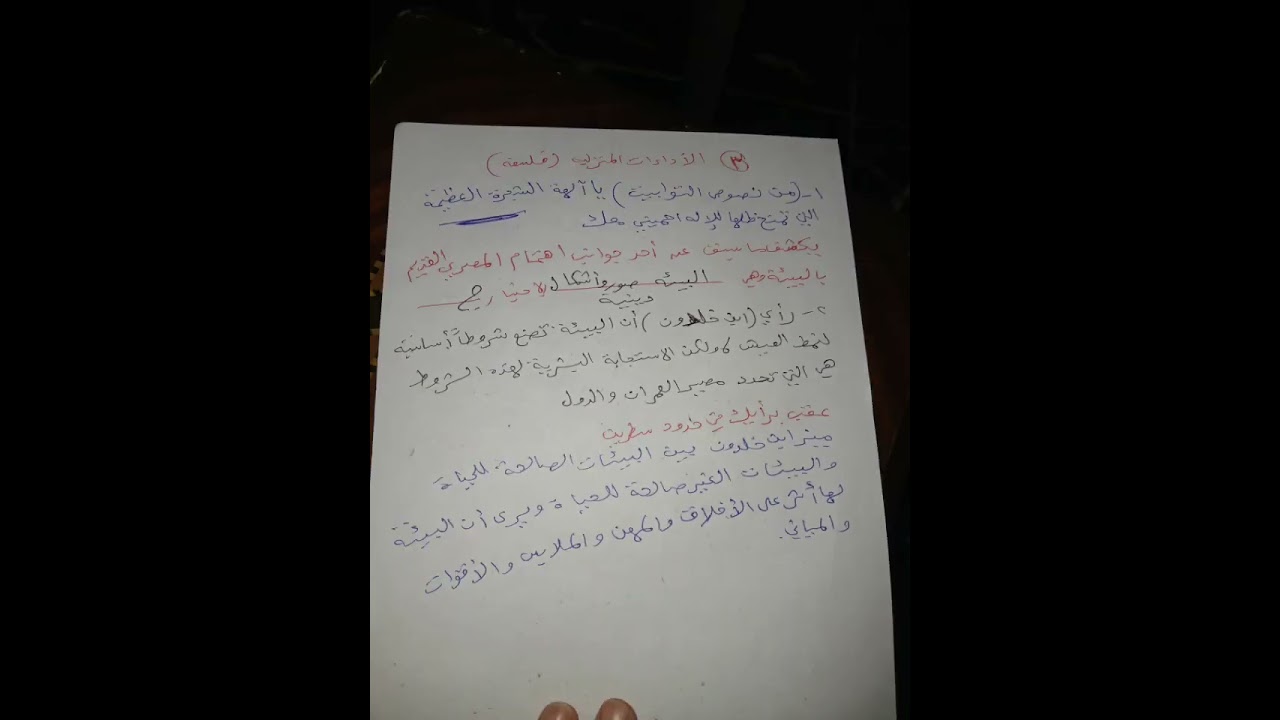 ٣ الأداءات المنزلية (فلسفة)
١- (من نصوص التوابيت) يا آلهة الشجرة العظيمة
التي تمنح ظلها للإله احميني معك
يكشف ما سبق عن أحد جوانب اهتمام المصري القديم
بالبيئة وهي البيئة صور وأشكال
دينية
٢- رأي (ابن خلدون) أن البيئة تضع شروطاً أساسية
لنمط العيش ولكن الاستجابة البشرية لهذه الشروط
هي التي تحدد مصير العمران والدول
عقب برأيك في حدود سطرين
ميز ابن خلدون بين البيئات الصالحة للحياة
والبيئات الغير صالحة للحياة ويرى أن البيئة
لها أثر على الأخلاق والمهن والملابس والأقوات
والمباني.